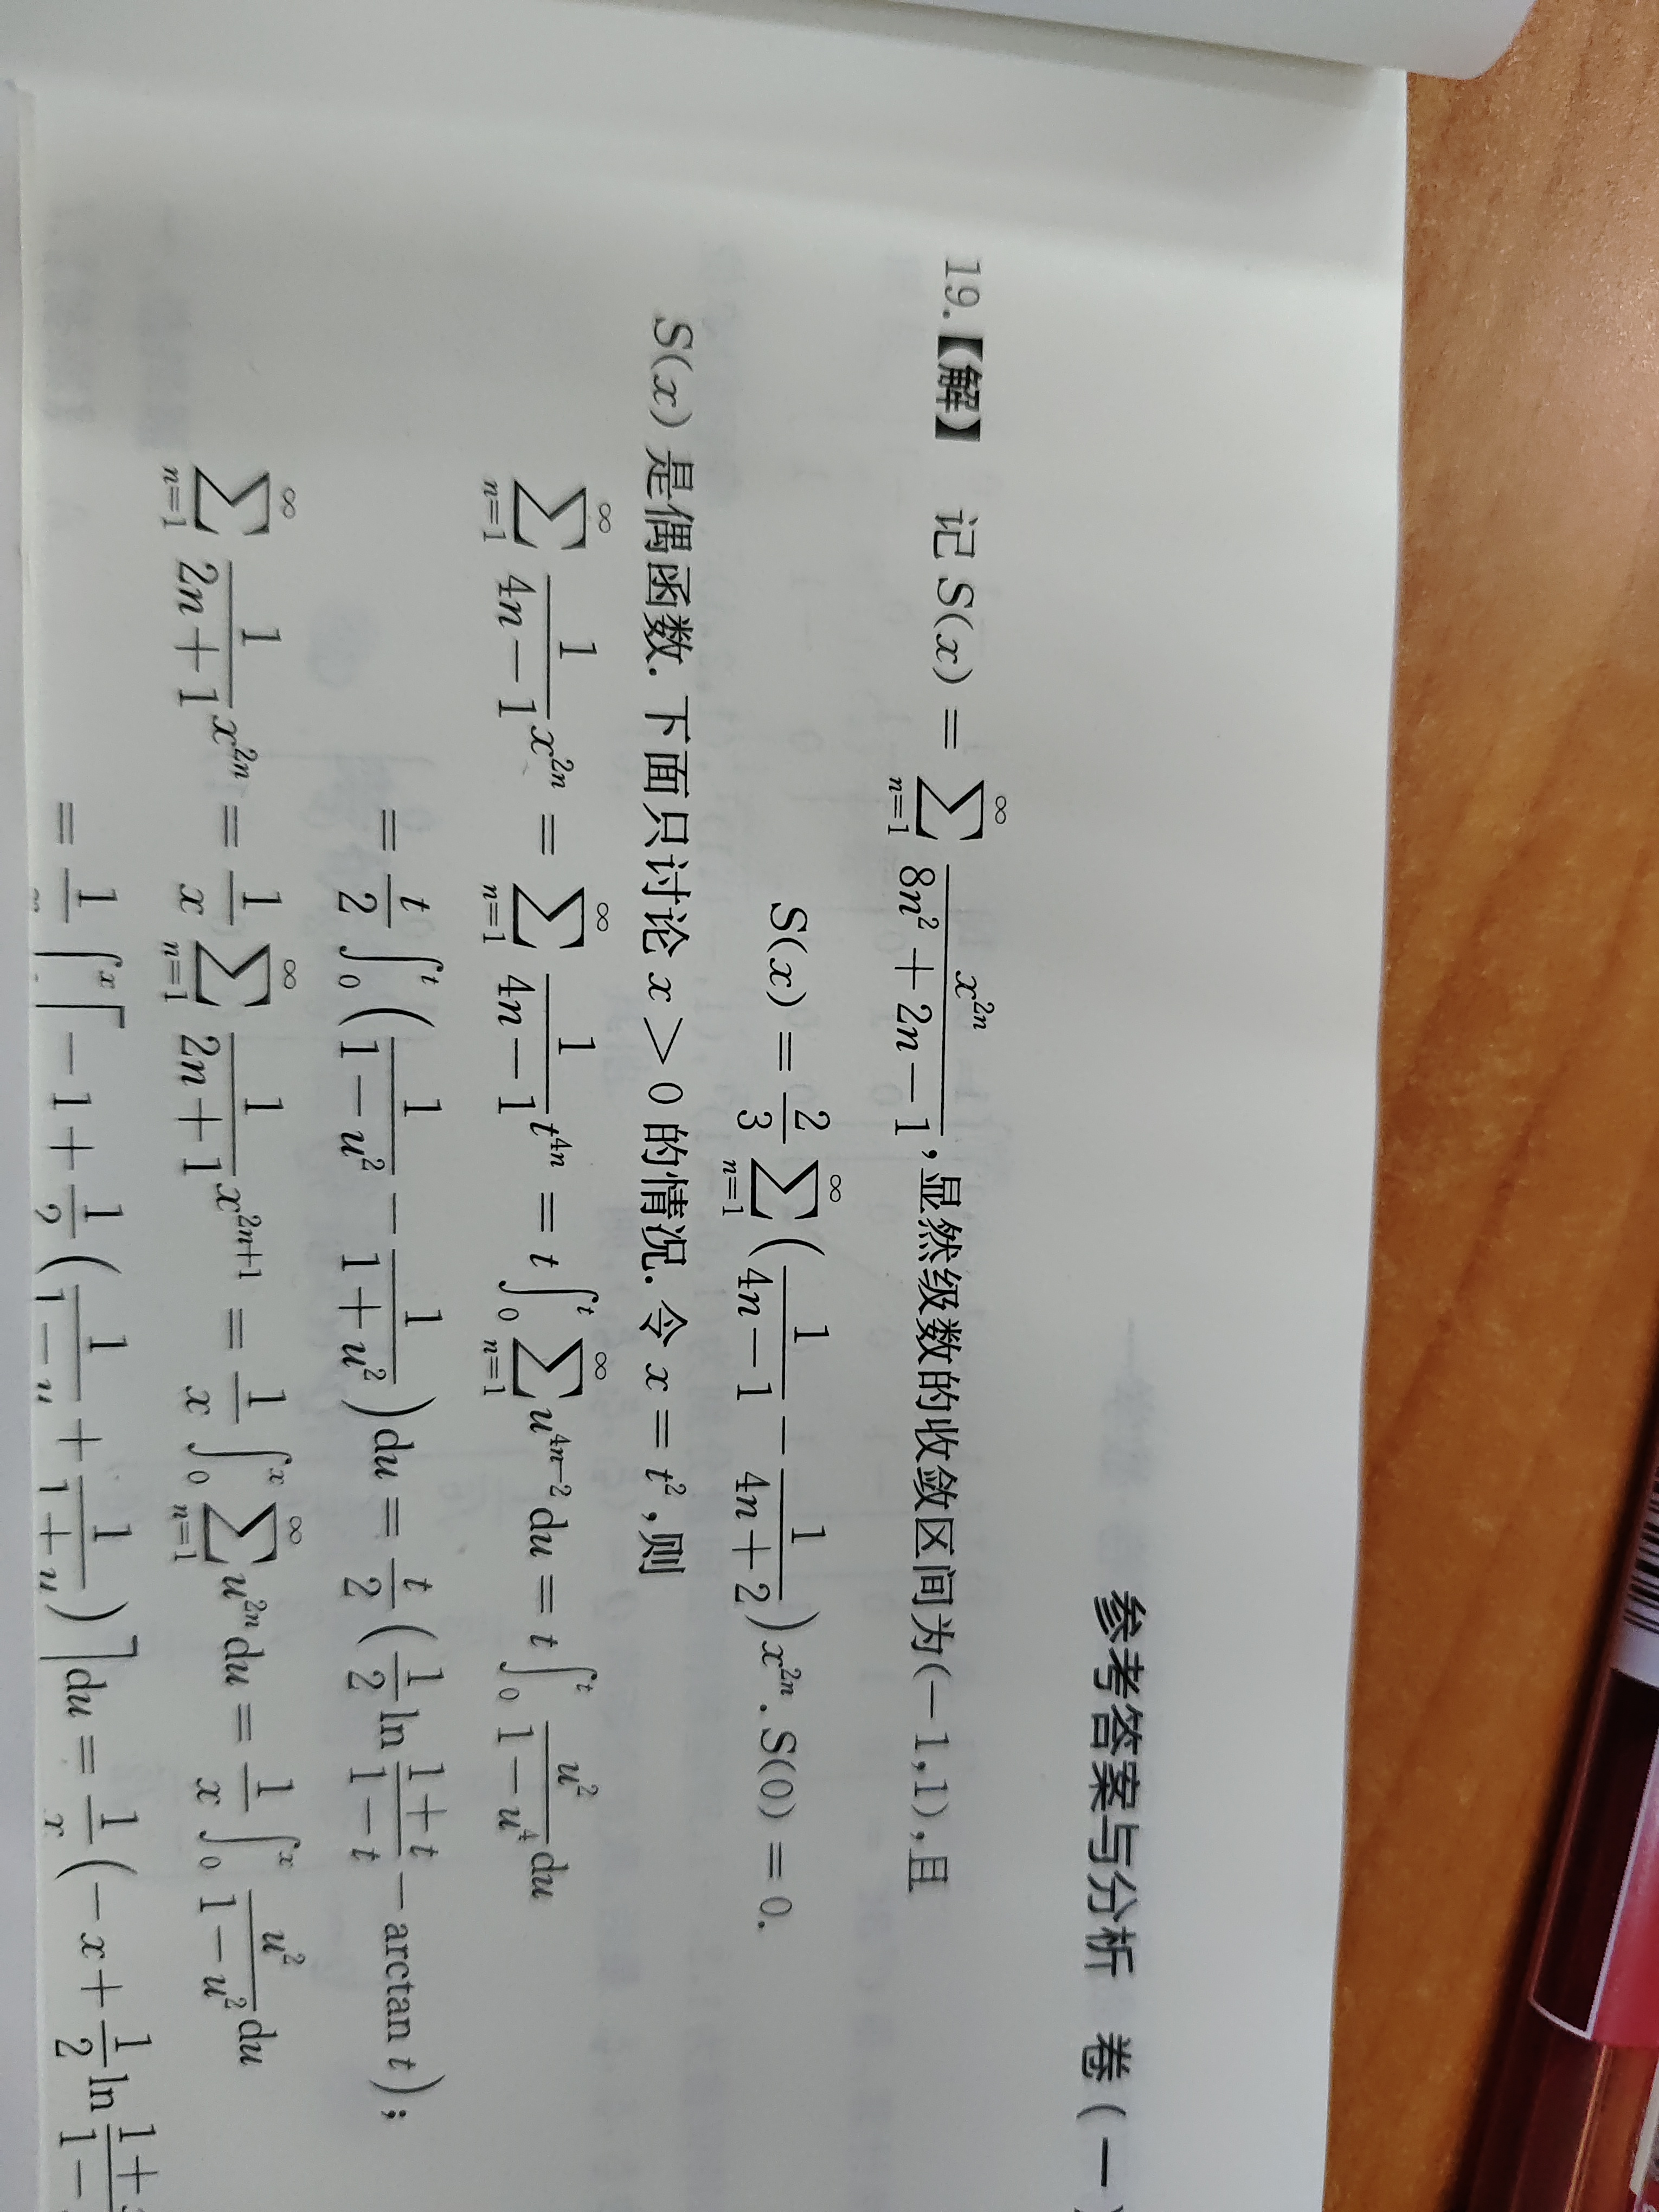 参考答案与分析 卷(一)
19.【解】 记 S(x) = \sum_{n=1}^{∞} \frac{x^{2n}}{8n^2+2n-1},显然级数的收敛区间为(-1,1),且
S(x) = \frac{2}{3} \sum_{n=1}^{∞} (\frac{1}{4n-1} - \frac{1}{4n+2}) x^{2n}. S(0) = 0.
S(x) 是偶函数. 下面只讨论 x > 0 的情况. 令 x = t^2,则
\sum_{n=1}^{∞} \frac{1}{4n-1} x^{2n} = \sum_{n=1}^{∞} \frac{1}{4n-1} t^{4n} = t \int_0^t \sum_{n=1}^{∞} u^{4n-2} du = t \int_0^t \frac{u^2}{1-u^4} du
= \frac{t}{2} \int_0^t (\frac{1}{1-u^2} - \frac{1}{1+u^2}) du = \frac{t}{2} (\frac{1}{2} ln \frac{1+t}{1-t} - arctan t);
\sum_{n=1}^{∞} \frac{1}{2n+1} x^{2n} = \frac{1}{x} \sum_{n=1}^{∞} \frac{1}{2n+1} x^{2n+1} = \frac{1}{x} \int_0^x \sum_{n=1}^{∞} u^{2n} du = \frac{1}{x} \int_0^x \frac{u^2}{1-u^2} du
= \frac{1}{x} \int^x [-1 + \frac{1}{2} (\frac{1}{1-u} + \frac{1}{1+u})] du = \frac{1}{x} (-x + \frac{1}{2} ln \frac{1+}{1-}